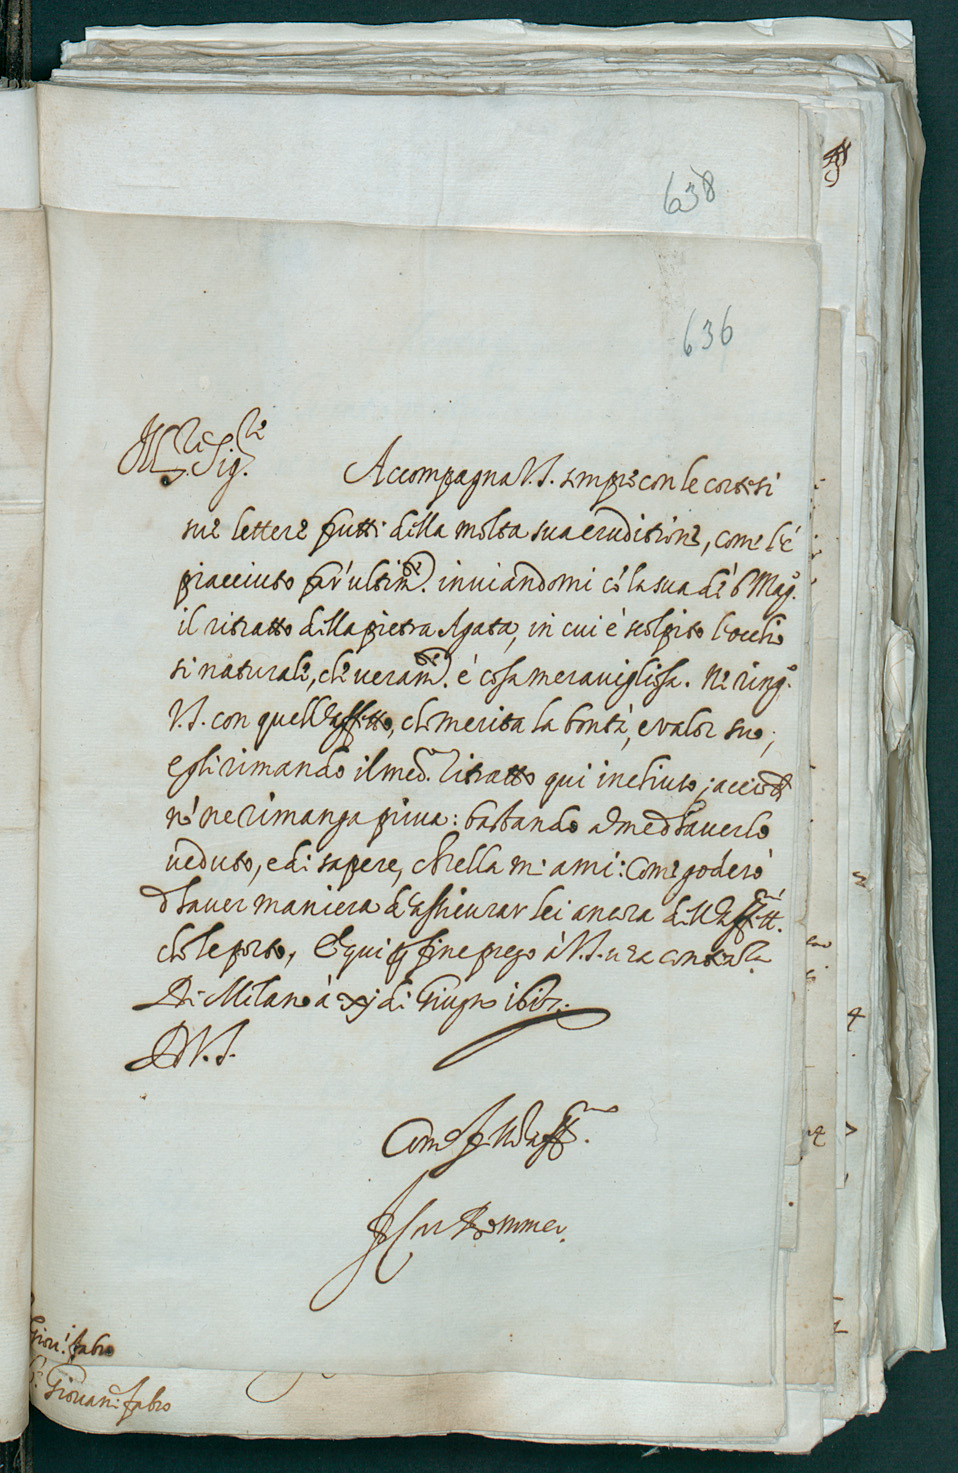 638
636
Ill.re Sig.re
Accompagna V.S. sempre con le cortesi
sue lettere frutti della molta sua eruditione, come l'è
piacciuto far ultim.te inviandomi cõ la sua de' 6 Mag.o
il ritratto della pietra Agata, in cui è scolpito l'occhio
sì naturale, che veram.te è cosa meravigliosa. Ne ring.o
V.S. con quell'affetto, che merita la bontà, e valor suo;
e gli rimando il med.o ritratto qui inchiuso, acciochè
nõ ne rimanga priva: bastando a me d'haverlo
veduto, e di sapere, ch'ella mi ami: come goderò
d'haver maniera d'assicurar lei ancora dell'aff.tt
che le porto, E qui p fine prego à V.S. vera
Di Milano à xj di Giugno
D V.S.
Come f.llo aff.mo
Giov. fabro
Giovanni fabro